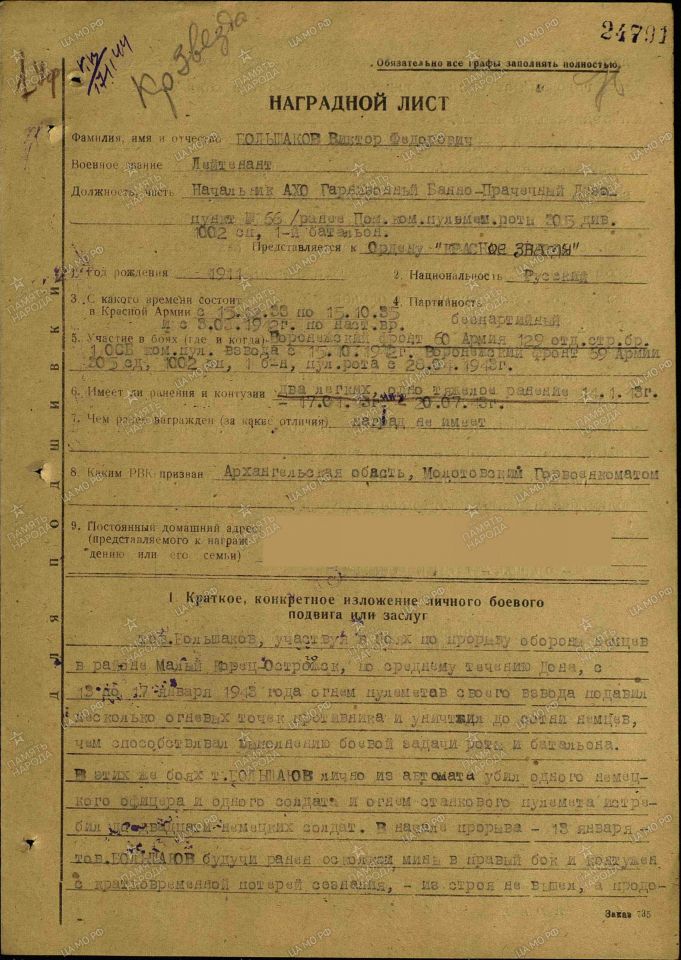 24791
Обязательно все графы заполнять полностью.
Кр Звезда
НАГРАДНОЙ ЛИСТ
Фамилия, имя и отчество БОЛЬШАКОВ Виктор Федорович
Военное звание Лейтенант
Должность, часть Начальник АХО Гарнизонный Банно-Прачечный Дезо-
пункт № 66 /ранее Пом.ком.пульмем.роты 205 див.
1002 сп, 1-й батальон.
Представляется к Ордену "КРАСНОЕ ЗВАМЯ"
1. Год рождения 1911
2. Национальность Русский
3. С какого времени состоит
в Красной Армии с по 15.10.35
и с 3.03.1942г. по наст.вр.
4. Партийность
беспартийный
5. Участие в боях (где и когда) Воронежский фронт 60 Армия 129 отд.стр.бр.
1 ОСБ ком.пул. взвода с 15.10.1942г. Воронежский фронт 69 Армии
205 сд, 1002 сп, 1 б-н, пул.рота с 1943г.
6. Имеет ли ранения и контузии два легких, одно тяжелое ранение 14.1.43г.
20.07.43г.
7. Чем ранее награжден (за какие отличия) наград не имеет
8. Каким РВК призван Архангельская обасть, Молотовским Горвоенкоматом
9. Постоянный домашний адрес
(представляемого к награж-
дению или его семьи)
ДЛЯ ПОДШИВКИ
I. Краткое, конкретное изложение личного боевого
подвига или заслуг
тов.Большаков, участвуя в боях по прорыву обороны немцев
в районе Малый Корец-Острожск, по среднему течению Дона, с
13 по 17 января 1943 года огнем пулеметав своего взвода подавил
несколько огневых точек противника и уничтжил до сотни немцев,
чем способствявал выполнению боевой задачи роты и батальона.
В этих же боях т.БОЛЬШАКОВ лично из автомата убил одного немец-
кого офицера и одного солдата и огнем станкового пулемета истре-
бил до немецких солдат. В начале прорыва - 13 января -
тов.БОЛЬШАКОВ будучи ранен осколком мины в правый бок и контужен
с кратковременной потерей сознания, - из строя не вышел, а продо-
Заказ 735
ПАМЯТЬ НАРОДА
ЦАМО.РФ